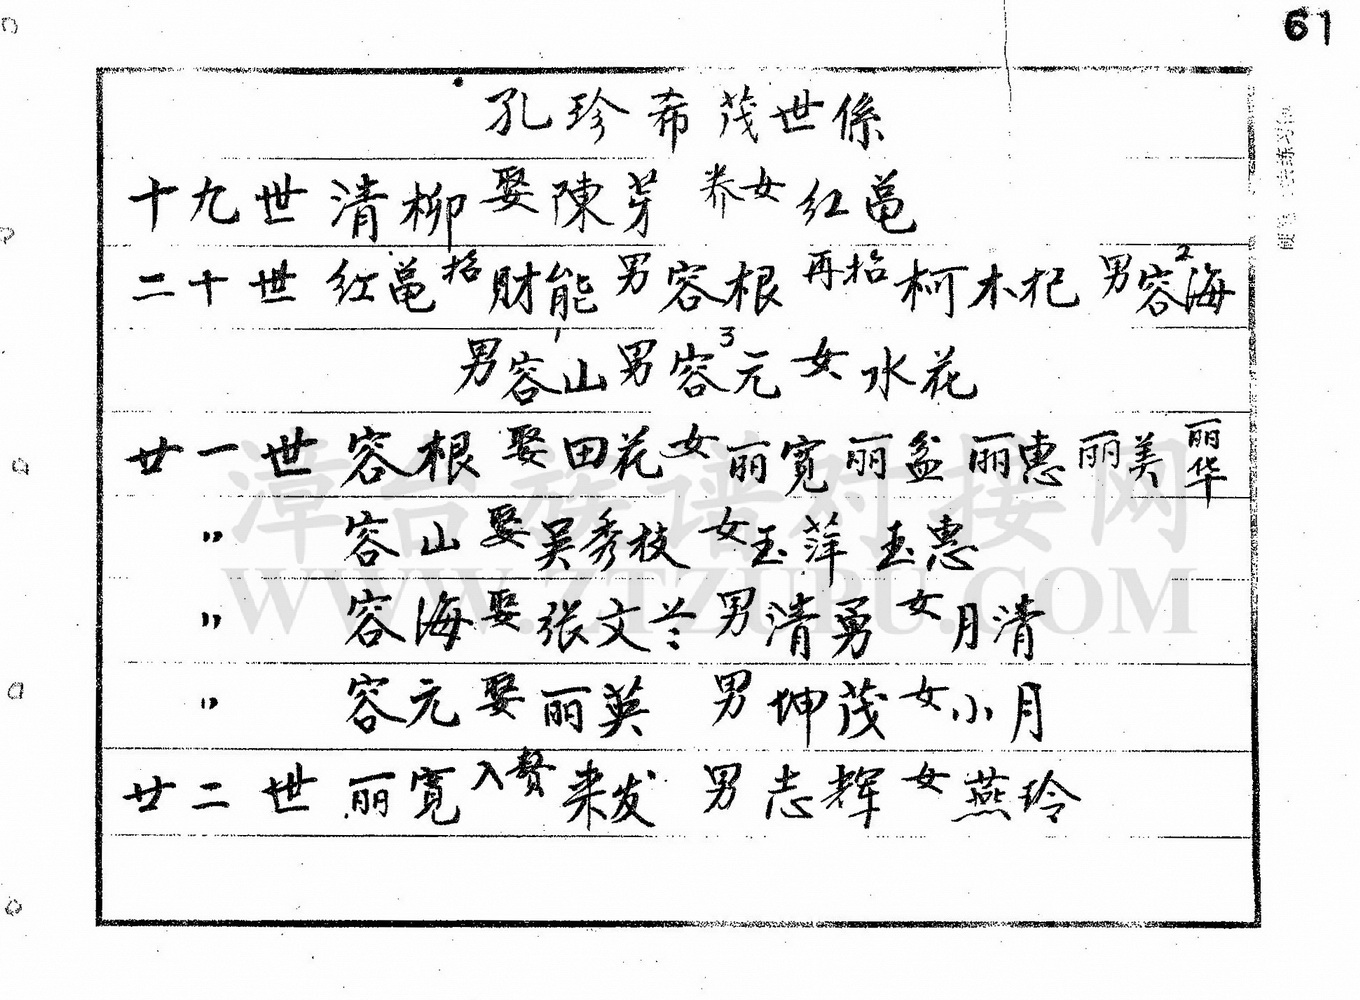 61
孔珍希茂世係
十九世 清柳 娶 陳芽 养女 红亀
二十世 红亀 招 财能 男 容根 再招 柯木杞 男 容海 2
男 容山 1 男 容元 3 女 水花
廿一世 容根 娶 田花 女 丽宽 丽盆 丽惠 丽美 丽华
〃 容山 娶 吴秀枝 女 玉萍 玉惠
〃 容海 娶 张文兰 男 清勇 女 月清
〃 容元 娶 丽英 男 坤茂 女 小月
廿二世 丽宽 入赘 来发 男 志辉 女 燕玲
漳台族谱对接网
WWW.ZTZUPU.COM